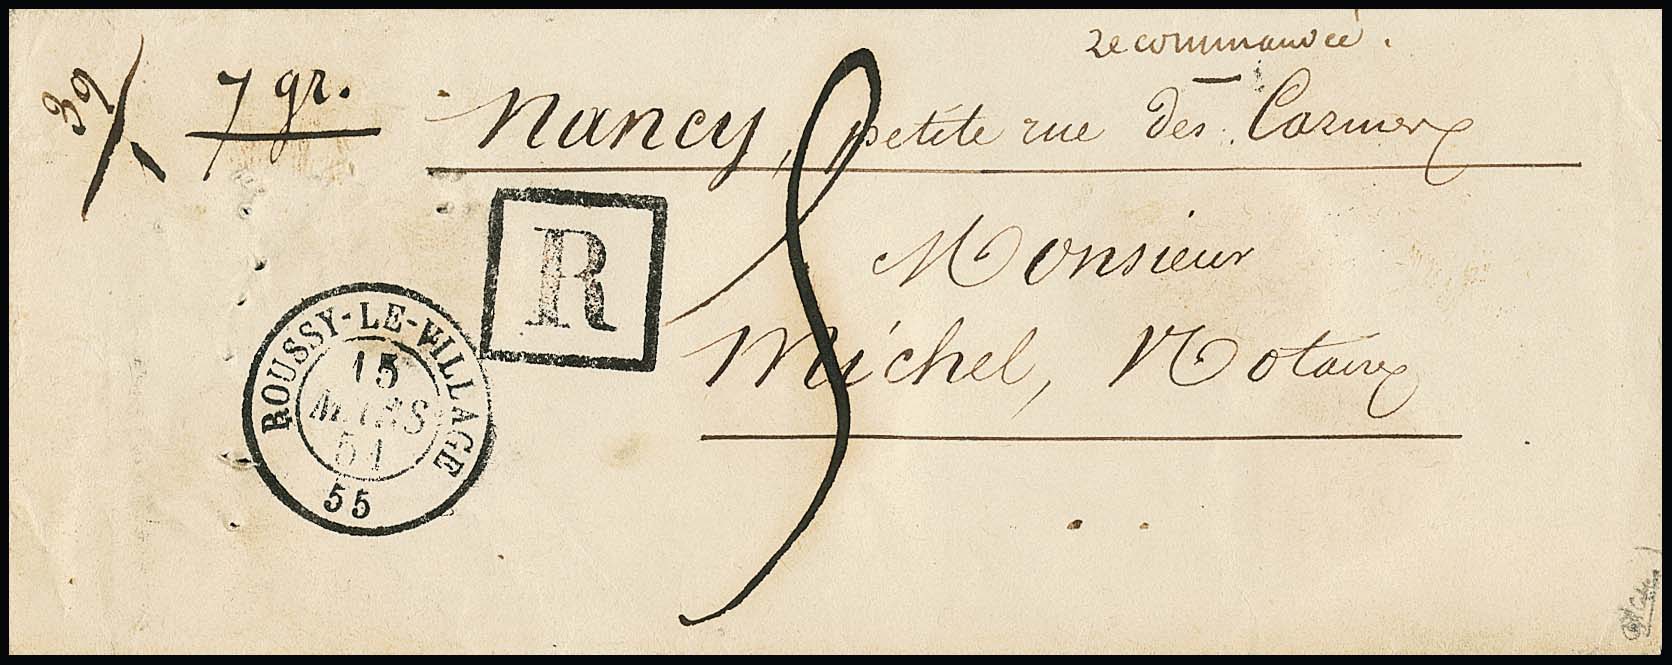 recommandée.
39
7 gr.
Nancy, petite rue des Carmes
R
Monsieur
Michel, Notaire
ROUSSY-LE-VILLAGE
15
MARS
51
55